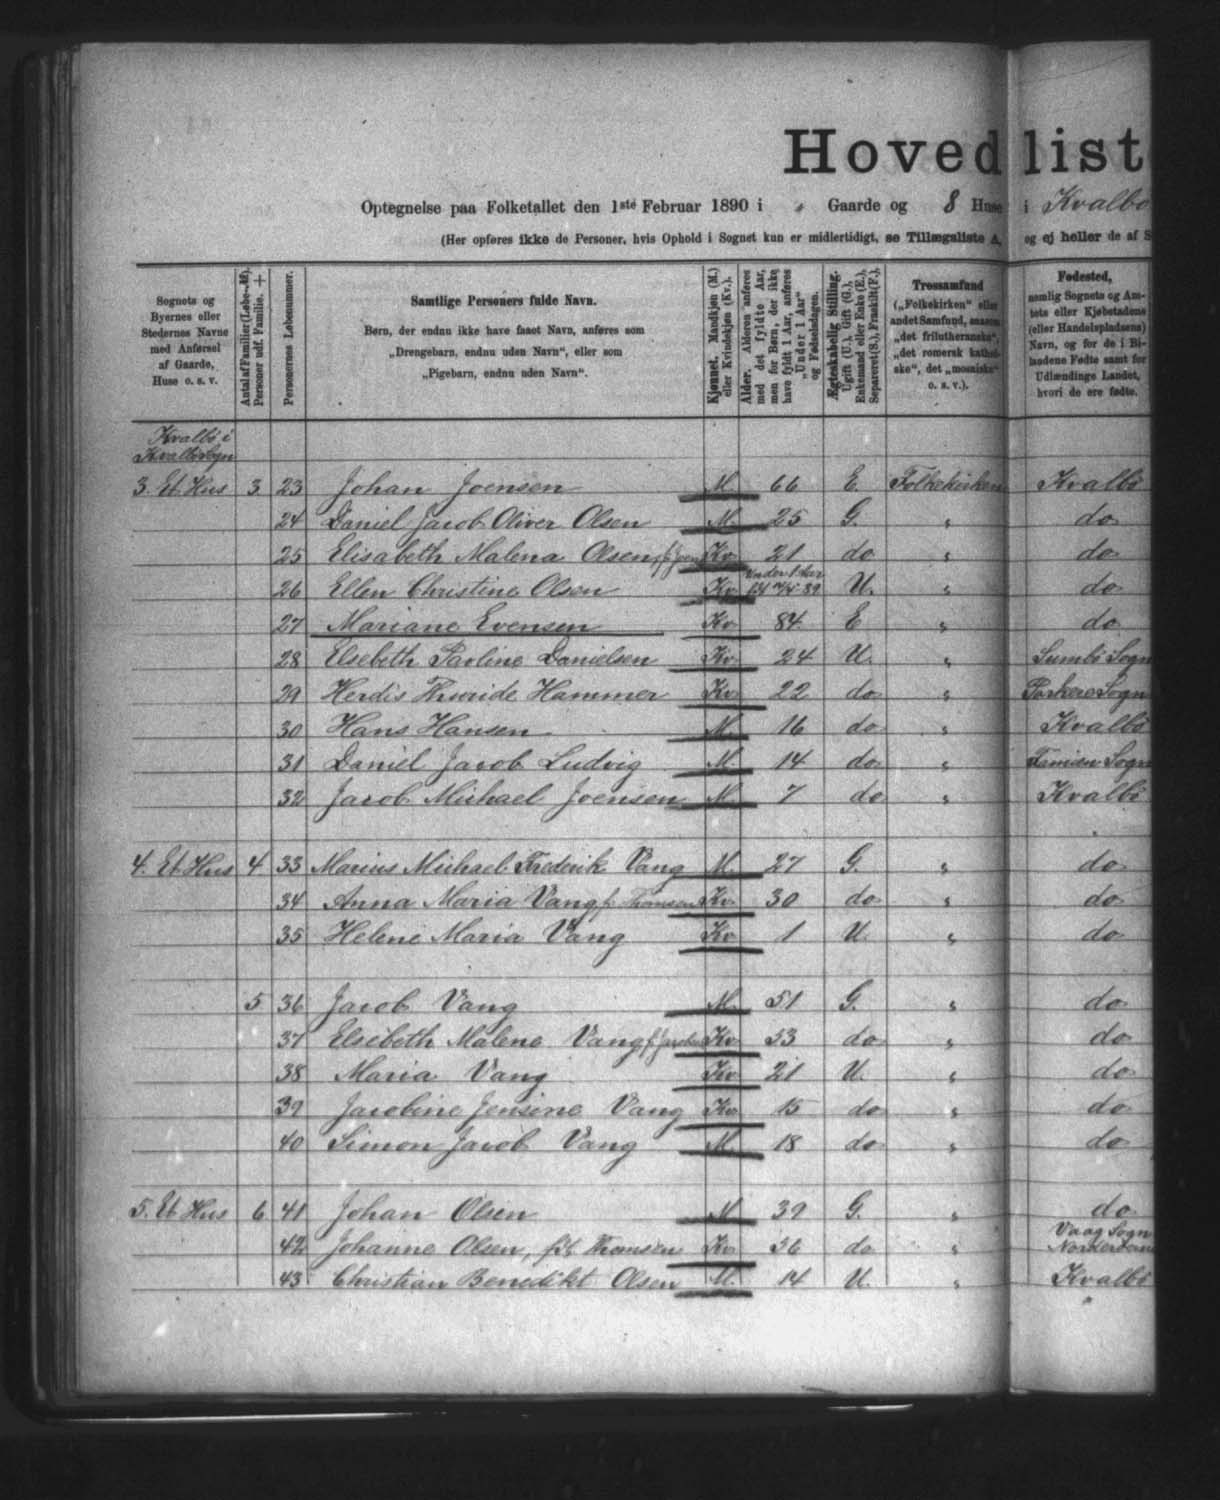 Hovedlist
Optegnelse paa Folketallet den 1ste Februar 1890 i „ Gaarde og 8 Huse i Kvalbø
(Her opføres ikke de Personer, hvis Ophold i Sognet kun er midlertidigt, se Tillægsliste A, og ej heller de af S
Sognets og
Byernes eller
Stedernes Navne
med Anførsel
af Gaarde,
Huse o. s. v.
Antal af Familier (Løbe-№).
Personer udf. Familie. +
Personernes Løbenummer.
Samtlige Personers fulde Navn.
Børn, der endnu ikke have faaet Navn, anføres som
„Drengebarn, endnu uden Navn“, eller som
„Pigebarn, endnu uden Navn“.
Kjønnet. Mandkjøn (M.)
eller Kvindekjøn (Kv.).
Alder. Alderen anføres
med det fyldte Aar,
men for Børn, der ikke
have fyldt 1 Aar, anføres
„Under 1 Aar“
og Fødselsdagen.
Ægteskabelig Stilling.
Ugift (U.), Gift (G.),
Enkemand eller Enke (E.),
Separeret (S.), Fraskilt (F.).
Trossamfund
(„Folkekirken“ eller
andet Samfund, saasom
„det frilutheranske“,
„det romersk katholske“,
det „mosaiske“
o. s. v.).
Fødested,
nemlig Sognets og Amtets
eller Kjøbstadens
(eller Handelspladsens)
Navn, og for de i Bilandene
Fødte samt for
Udlændinge Landet,
hvori de ere fødte.
Kvalbø i
Kvalbø Sogn
3. Et Hus 3 23 Johan Joensen M. 66 E. Folkekirken Kvalbø
24 Daniel Jacob Oliver Olsen M. 25 G. „ do
25 Elisabeth Malena Olsen, f. Joens Kv. 21 do „ do
26 Ellen Christine Olsen Kv. Under 1 Aar U. „ do
27 Mariane Evensen Kv. 84 E „ do
28 Elsebeth Paoline Danielsen Kv. 24 U. „ Sumbø Sogn
29 Herdis Thuride Hammer Kv. 22 do „ Porkere Sogn
30 Hans Hansen M. 16 do „ Kvalbø
31 Daniel Jacob Ludvig M. 14 do „ Famien Sogn
32 Jacob Michael Joensen M. 7 do „ Kvalbø
4. Et Hus 4 33 Marius Michael Frederik Vang M. 27 G. „ do
34 Anna Maria Vang f. Thomsen Kv. 30 do „ do
35 Helene Maria Vang Kv. 1 U. „ do
5 36 Jacob Vang M. 51 G. „ do
37 Elsebeth Malene Vang f. Jacobs Kv. 53 do „ do
38 Maria Vang Kv. 21 U. „ do
39 Jacobine Jensine Vang Kv. 15 do „ do
40 Simon Jacob Vang M. 18 do „ do
5. Et Hus 6 41 Johan Olsen M. 39 G. „ do
42 Johanne Olsen, født Thomsen Kv. 36 do „ Vaag Sogn
43 Christian Benedikt Olsen M. 14 U. „ Kvalbø